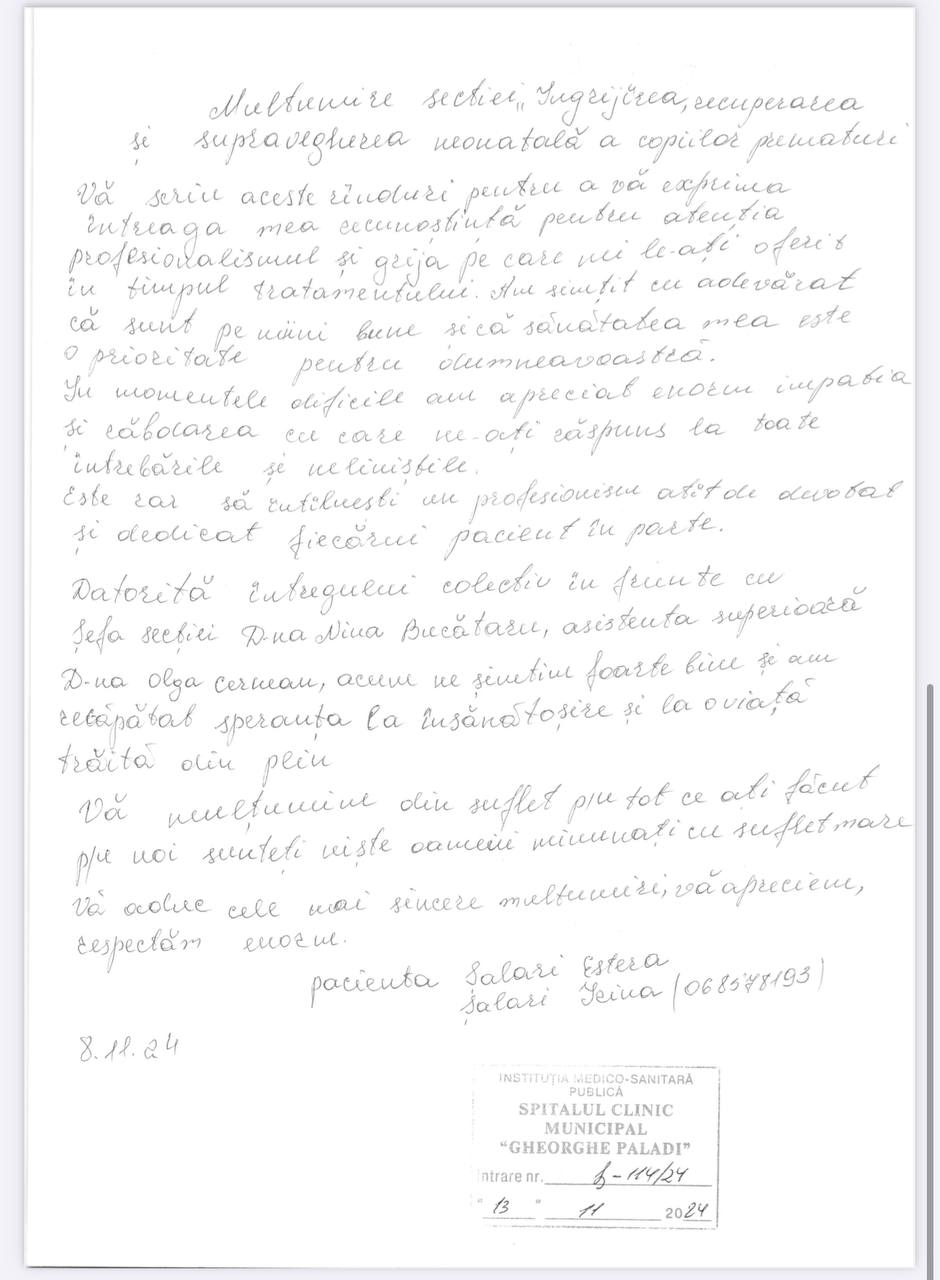 Multumire sectiei „Ingrijirea, recuperarea
și supravegherea neonatală a copiilor prematuri
Vă scriu aceste rînduri pentru a vă exprima
întreaga mea recunoștință pentru atenția
profesionalismul și grija pe care mi le-ați oferit
în timpul tratamentului. Am simțit cu adevărat
că sunt pe mîini bune si că sănătatea mea este
o prioritate pentru dumneavoastră.
In momentele dificile am apreciat enorm impatia
și răbdarea cu care ne-ați răspuns la toate
întrebările și neliniștile.
Este rar să intilnești un profesionism atît de devotat
și dedicat fiecărui pacient în parte.
Datorită întregului colectiv în frunte cu
Șefa secției D-na Nina Bucătaru, asistenta superioară
D-na Olga Cerman, acum ne simtim foarte bine și am
recăpătat speranța la însănătoșire și la o viață
trăită din plin
Vă mulțumim din suflet p/u tot ce ati făcut
p/u noi sunteți niște oameni minunați cu suflet mare
Vă aduc cele mai sincere multumiri, vă apreciem,
respectăm enorm.
pacienta Șalari Estera
Șalari Irina (068578193)
8.11.24
INSTITUȚIA MEDICO-SANITARĂ
PUBLICĂ
SPITALUL CLINIC
MUNICIPAL
“GHEORGHE PALADI”
Intrare nr. -114/24
“ 13 ” 11 2024